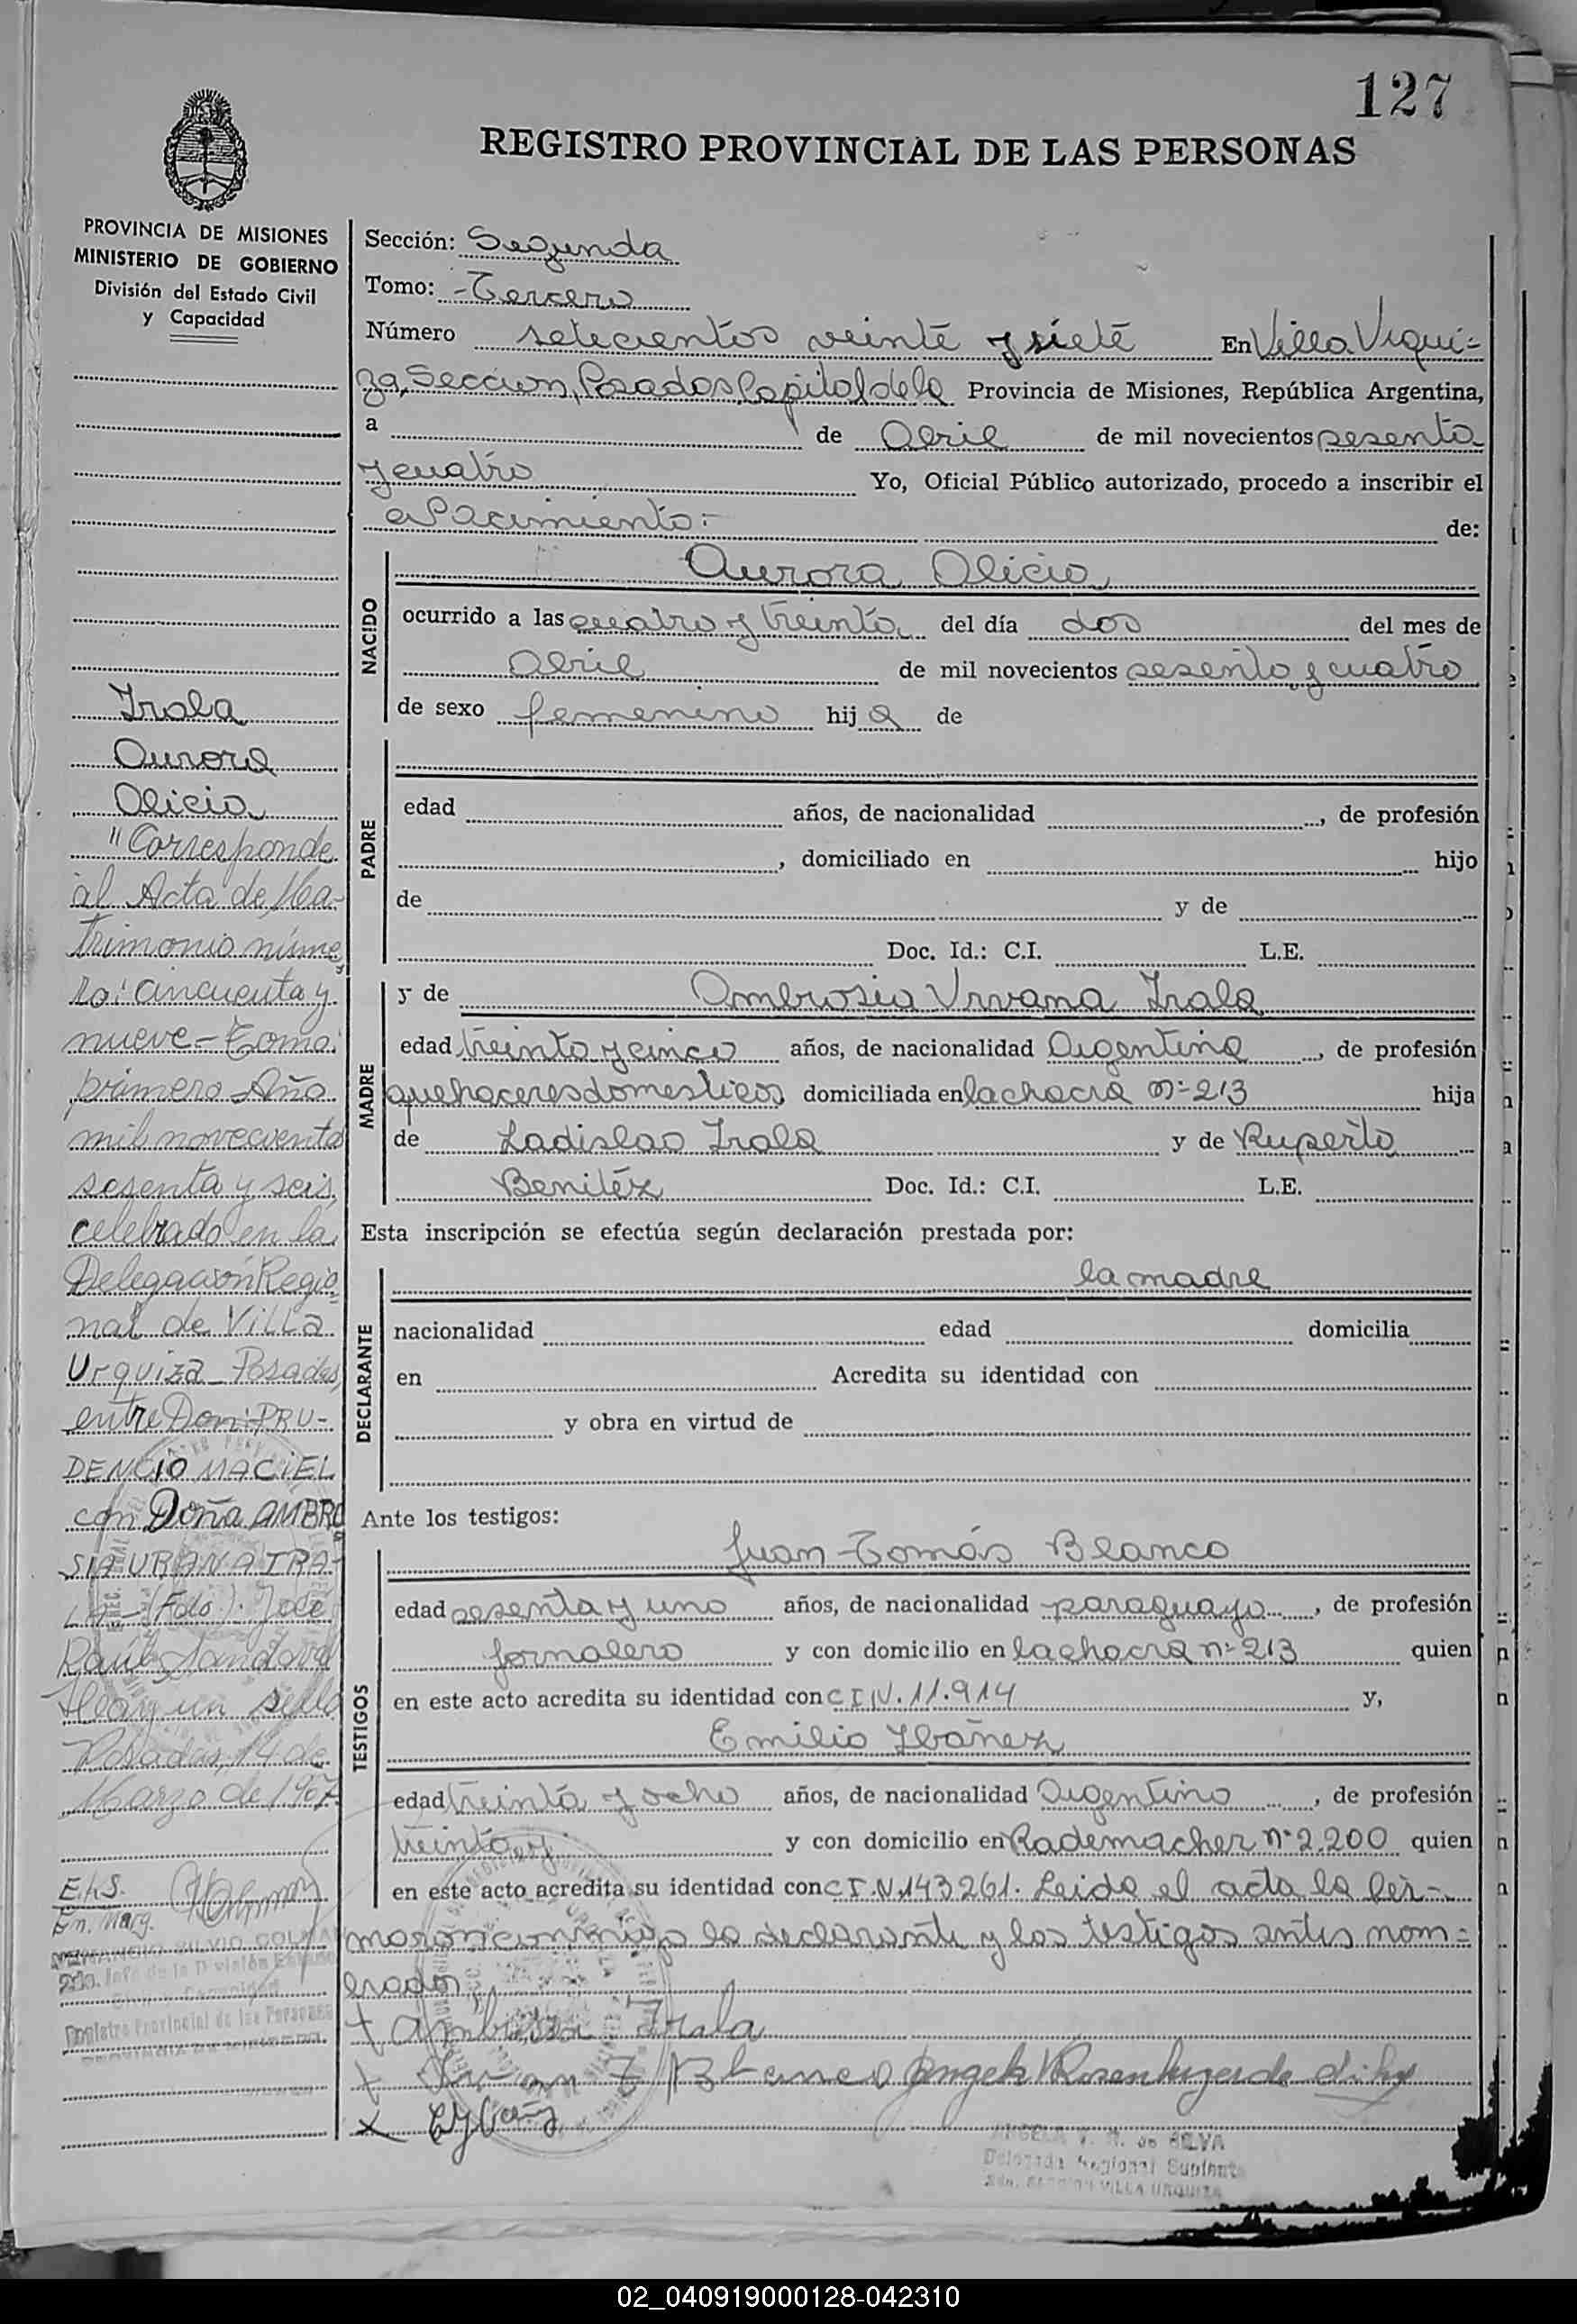 127
REGISTRO PROVINCIAL DE LAS PERSONAS
PROVINCIA DE MISIONES
MINISTERIO DE GOBIERNO
División del Estado Civil
y Capacidad
Irala
Aurora
Alicia
"Corresponde
al Acta de Ma-
trimonio núme
ro: cincuenta y
nueve - Tomo:
primero Año
mil novecienta
sesenta y seis,
celebrado en la
Delegación Regio
nal de Villa
Urquiza - Posadas,
entre Don: PRU-
DENCIO MACIEL
con Doña AMBRO
SIA URBANA IRA-
LA - (Fdo). José
Raúl Sandoval
Hay un sello
Posadas, 14 de
Marzo de 1967.
E.h.S.
En. Marg.
SILVIO
2do. Jefe de la División
Registro Provincial de las Personas
Sección: Segunda
Tomo: - Tercero
Número setecientos veinte y siete En Villa Urqui=
za, Seccion, Posadas, Capital de la Provincia de Misiones, República Argentina,
a de Abril de mil novecientos sesenta
y cuatro Yo, Oficial Público autorizado, procedo a inscribir el
Nacimiento:- de:
NACIDO
Aurora Alicia
ocurrido a las cuatro y treinta del día dos del mes de
Abril de mil novecientos sesenta y cuatro
de sexo femenino hij a de
PADRE
edad años, de nacionalidad , de profesión
, domiciliado en hijo
de y de
Doc. Id.: C.I. L.E.
MADRE
y de Ambrosia Urvana Irala
edad treinta y cinco años, de nacionalidad Argentina , de profesión
quehaceres domesticos domiciliada en la chacra nº 213 hija
de Ladislao Irala y de Ruperta
Benitéz Doc. Id.: C.I. L.E.
Esta inscripción se efectúa según declaración prestada por:
DECLARANTE
la madre
nacionalidad edad domicilia
en Acredita su identidad con
y obra en virtud de
Ante los testigos:
TESTIGOS
Juan Tomás Blanco
edad sesenta y uno años, de nacionalidad paraguayo , de profesión
jornalero y con domicilio en la chacra nº 213 quien
en este acto acredita su identidad con C I N. 11.914 y,
Emilio Ibáñez
edad treinta y ocho años, de nacionalidad Argentino , de profesión
treinta y y con domicilio en Rademacher nº 2.200 quien
en este acto acredita su identidad con C I. N. 143261. Leida el acta la fir-
maron conmigo la declarante y los testigos antes nom=
brados
+ Ambrosia Irala
+ Juan T Blanco
x
ANGELA V. R. de SILVA
Delegada Regional Suplente
VILLA URQUIZA
02_040919000128-042310